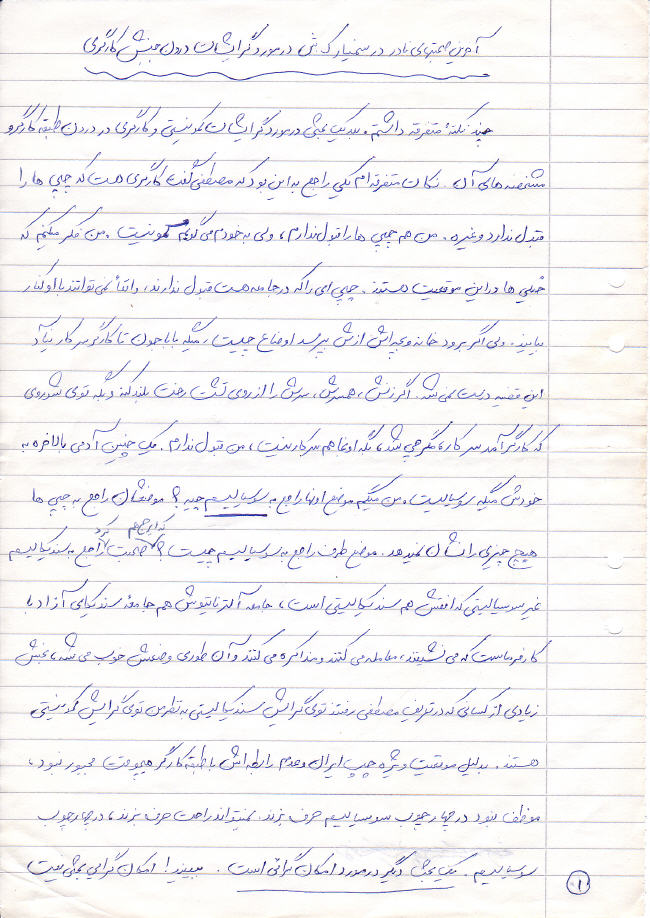 آخرین صحبتهای نادر در سمینار ک ش در مورد گرایشات درون جنبش کارگری
چند نکتهٔ متفرقه داشتم و یک بحثی در مورد گرایشات کمونیستی و کارگری در درون طبقه کارگر و
مشخصه های آن. نکات متفرقه ام یکی راجع به این بود که مصطفی گفت کارگری هست که چپی ها را
قبول ندارد و غیره. من هم چپی ها را قبول ندارم، ولی به خودم می گویم کمونیست. من فکر میکنم که
خیلی ها در این موقعیت هستند. چپی ای را که در جامعه هست قبول ندارند، واقعاً نمی توانند با او کنار
بیایند. ولی اگر برود خانه و بچه اش ازش بپرسد اوضاع چیست، میگه باباجون تا کارگر سر کار نیاد
این قضیه درست نمی شه. اگر زنش، همسرش، سرش را از روی تشت رخت بلند کنه و بگه توی شوروی
که کارگر آمد سر کار، مگر چی شد، بگه اونجا هم سر کار نیست، من قبول ندارم. یک چنین آدمی بالاخره به
خودش میگه سوسیالیست. من میگم موضع اونها راجع به سوسیالیسم چیه؟ موضعشان راجع به چپی ها
هیچ چیزی را نشان نمیدهد. موضع طرف راجع به سوسیالیسم چیست؟ که ایرج هم صحبت کرد راجع به سندیکالیسم
غیر سوسیالیستی که افقش هم سندیکالیستی است، جامعه آلترناتیوش هم جامعهٔ سندیکای آزاد با
کارفرماست که می نشینند، معامله می کنند و مذاکره می کنند و آن طوری وضعش خوب می شه، بخش
زیادی از کسانی که در تعریف مصطفی رفتند توی گرایش سندیکالیستی به نظر من توی گرایش کمونیستی
هستند. بدلیل موقعیت ویژه چپ ایران و عدم رابطه اش با طبقه کارگر هیچوقت مجبور نبود،
موظف نبود در چهارچوب سوسیالیسم حرف بزند. نمیتواند راحت حرف بزند، در چهارچوب
سوسیالیسم. یک بحث دیگر در مورد امکان گرائی است. ببینید! امکان گرایی بحثی نیست
۱